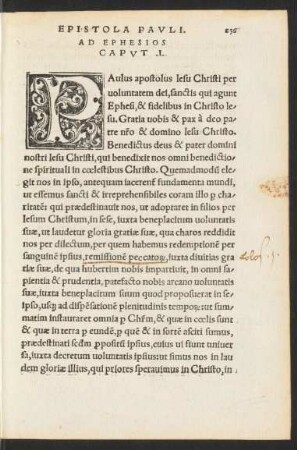 EPISTOLA PAVLI. 236
AD EPHESIOS
CAPVT .I.
PAulus apostolus Iesu Christi per
uoluntatem dei, sanctis qui agunt
Ephesi, & fidelibus in Christo Ie-
su. Gratia uobis & pax à deo patre
nr̃o & domino Iesu Christo.
Benedictus deus & pater domini
nostri Iesu Christi, qui benedixit nos omni benedictio-
ne spirituali in cœlestibus Christo. Quemadmodũ ele-
git nos in ipso, antequam iacerenť fundamenta mundi,
ut essemus sancti & irreprehensibiles coram illo p cha-
ritatẽ: qui prædestinauit nos, ut adoptaret in filios per
Iesum Christum, in sese, iuxta beneplacitum uoluntatis
suæ, ut laudetur gloria gratiæ suæ, qua charos reddidit
nos per dilectum, per quem habemus redemptionẽ per
sanguinẽ ipsius, remissionẽ peccatoꝝ, iuxta diuitias gra-
tiæ suæ, de qua hubertim nobis impartiuit, in omni sa-
pientia & prudentia, patefacto nobis arcano uoluntatis
suæ, iuxta beneplacitum suum quod proposuerat in se-
ipso, usqꝫ ad dispẽsationẽ plenitudinis tempoꝝ: ut sum-
matim instauraret omnia p Chr̃m, & quæ in cœlis sunt
& quæ in terra p eundẽ. p quẽ & in sortẽ asciti sumus,
prædestinati scđm ꝓpositũ ipsius, cuius ui fiunt uniuer
sa, iuxta decretum uoluntatis ipsius: ut simus nos in lau
dem gloriæ illius, qui priores sperauimus in Christo, in